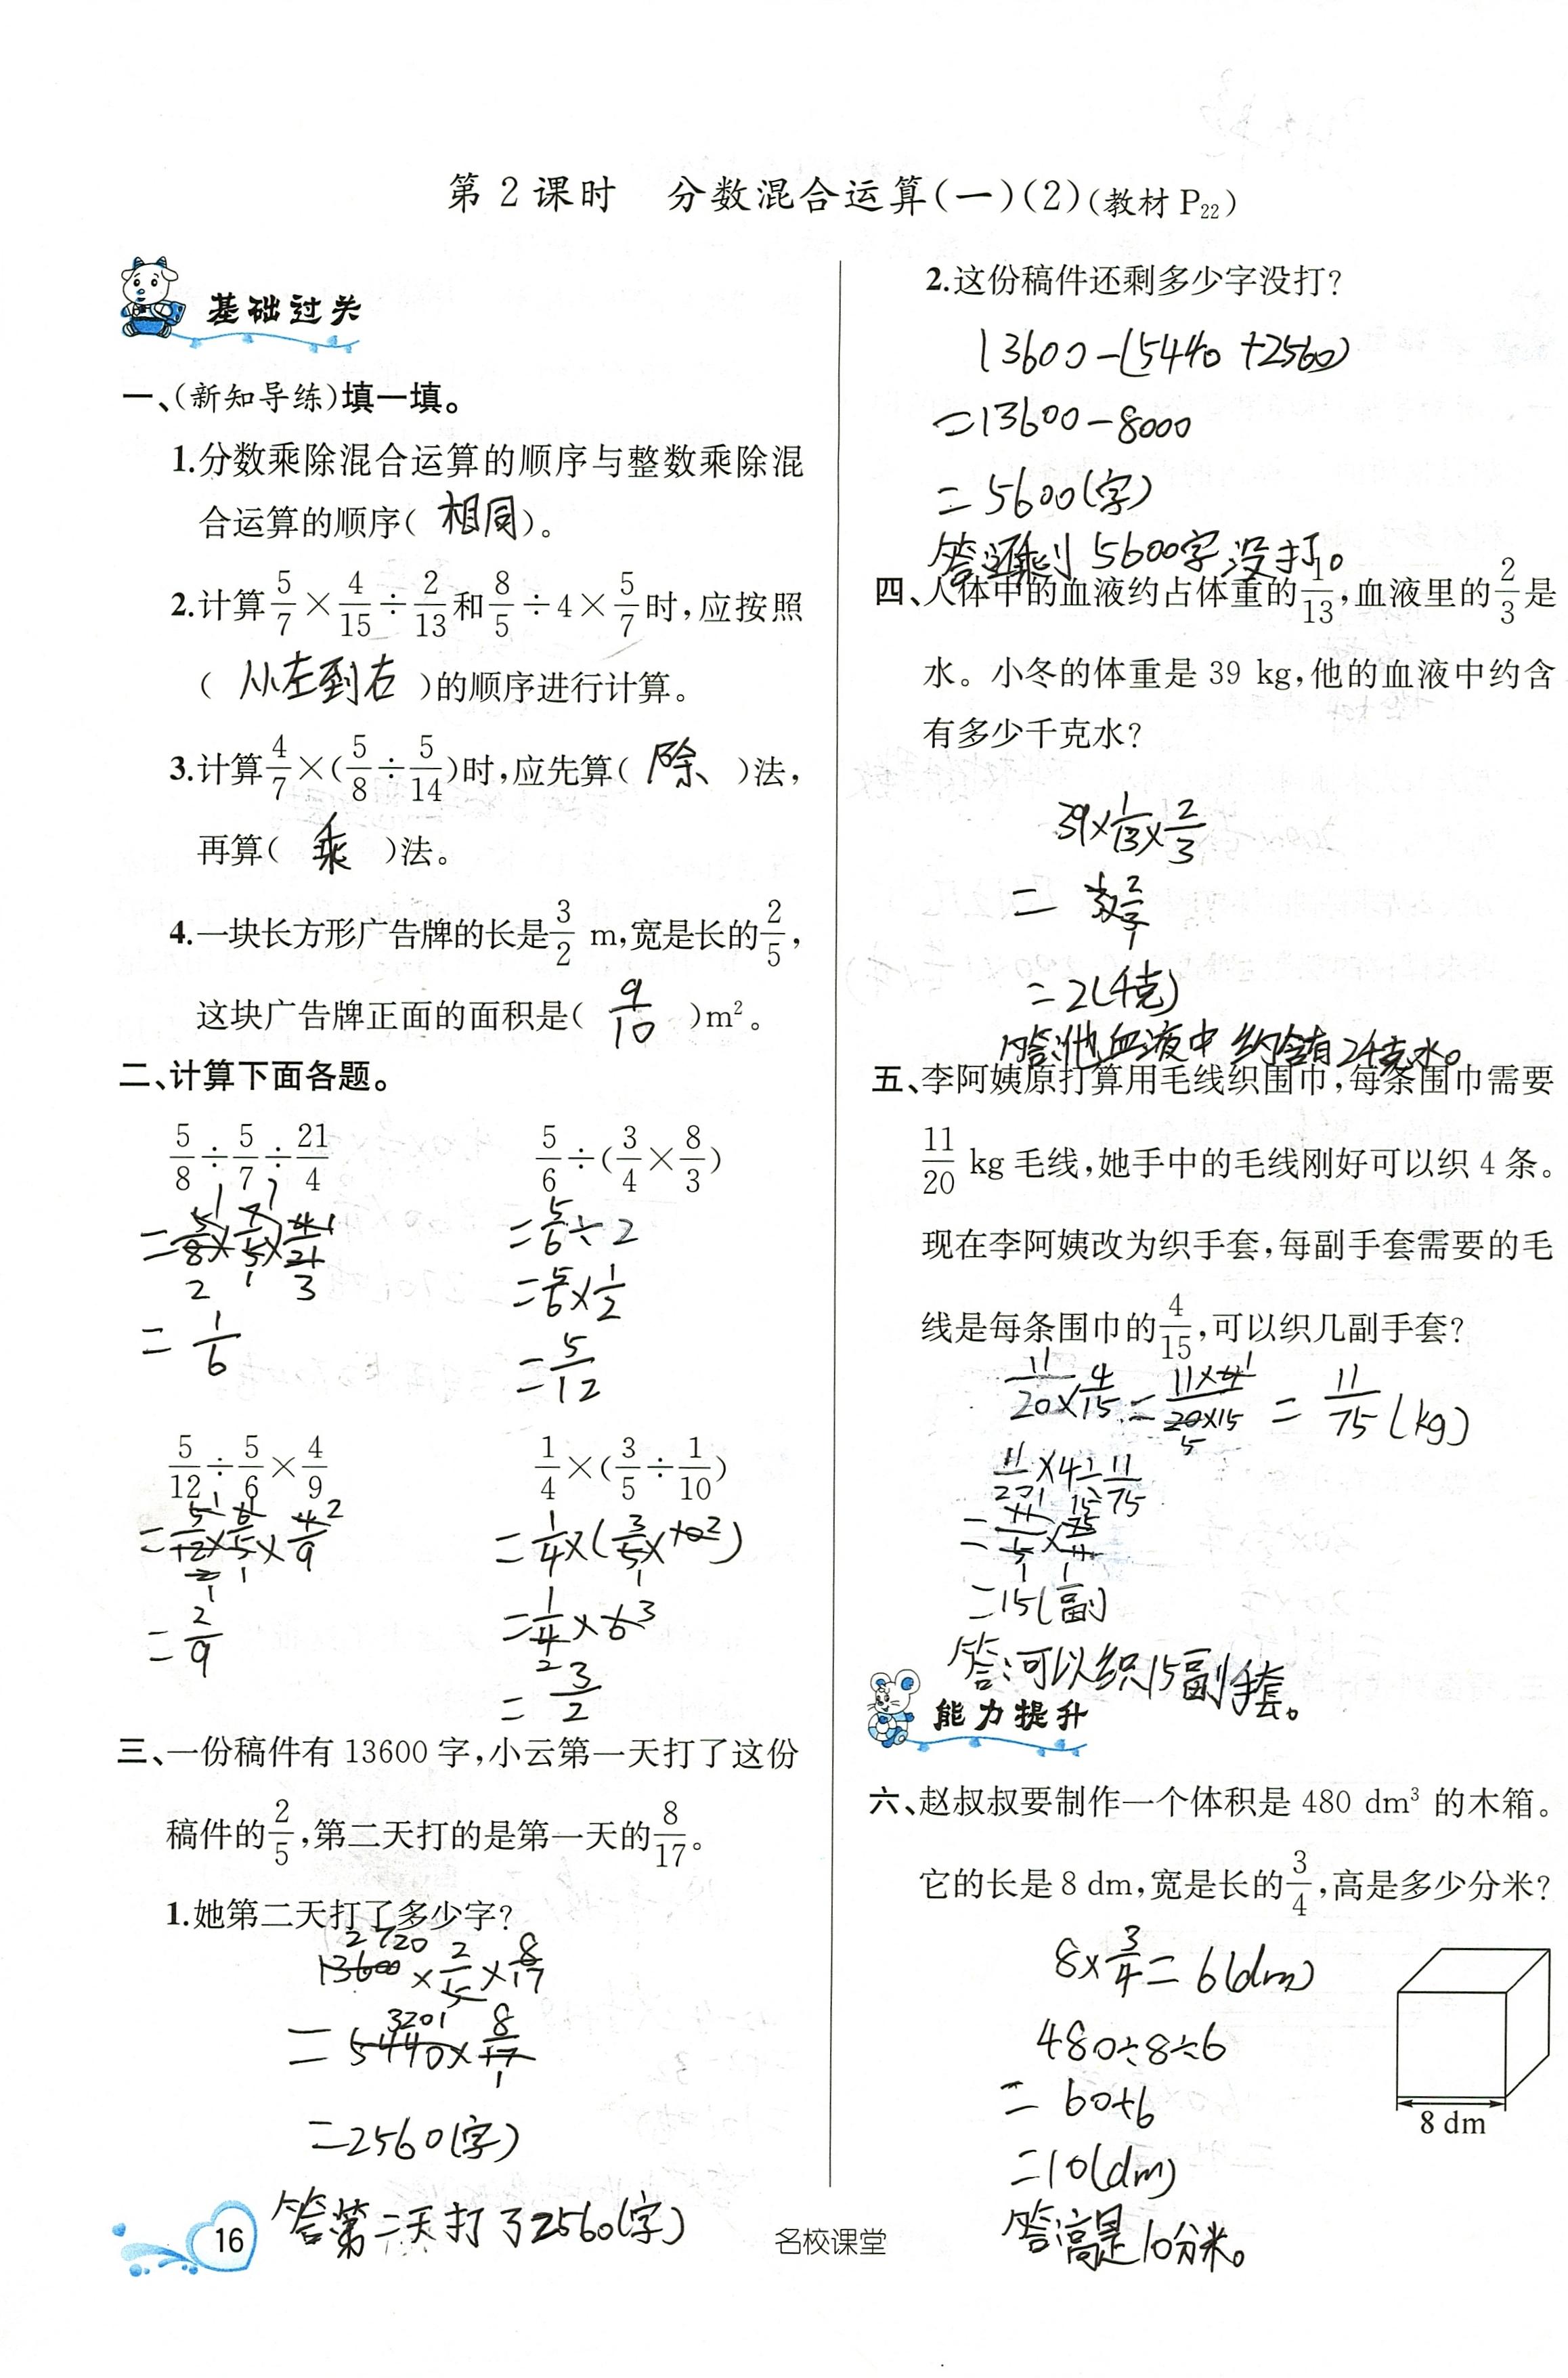 第2课时 分数混合运算(一)(2)(教材P22)
基础过关
一、(新知导练)填一填。
1.分数乘除混合运算的顺序与整数乘除混
合运算的顺序( 相同 )。
2.计算5/7×4/15÷2/13和8/5÷4×5/7时,应按照
( 从左到右 )的顺序进行计算。
3.计算4/7×(5/8÷5/14)时,应先算( 除 )法,
再算( 乘 )法。
4.一块长方形广告牌的长是3/2 m,宽是长的2/5,
这块广告牌正面的面积是( 9/10 )m²。
二、计算下面各题。
5/8÷5/7÷21/4
=5/8×7/5×4/21
=1/6
5/6÷(3/4×8/3)
=5/6÷2
=5/6×1/2
=5/12
5/12÷5/6×4/9
=5/12×6/5×4/9
=2/9
1/4×(3/5÷1/10)
=1/4×(3/5×10)
=1/4×6
=3/2
三、一份稿件有13600字,小云第一天打了这份
稿件的2/5,第二天打的是第一天的8/17。
1.她第二天打了多少字?
13600×2/5×8/17
=5440×8/17
=2560(字)
答第二天打了2560(字)
2.这份稿件还剩多少字没打?
13600-(5440+2560)
=13600-8000
=5600(字)
答:还剩5600字没打。
四、人体中的血液约占体重的1/13,血液里的2/3是
水。小冬的体重是39 kg,他的血液中约含
有多少千克水?
39×1/13×2/3
=3×2/3
=2(千克)
答:他血液中约含有2千克水。
五、李阿姨原打算用毛线织围巾,每条围巾需要
11/20 kg毛线,她手中的毛线刚好可以织4条。
现在李阿姨改为织手套,每副手套需要的毛
线是每条围巾的4/15,可以织几副手套?
11/20×4/15=11×4/20×15=11/75(kg)
11/20×4÷11/75
=11/5×75/11
=15(副)
答:可以织15副手套。
能力提升
六、赵叔叔要制作一个体积是480 dm³的木箱。
它的长是8 dm,宽是长的3/4,高是多少分米?
8×3/4=6(dm)
480÷8÷6
=60÷6
=10(dm)
答:高是10分米。
8 dm
16
名校课堂